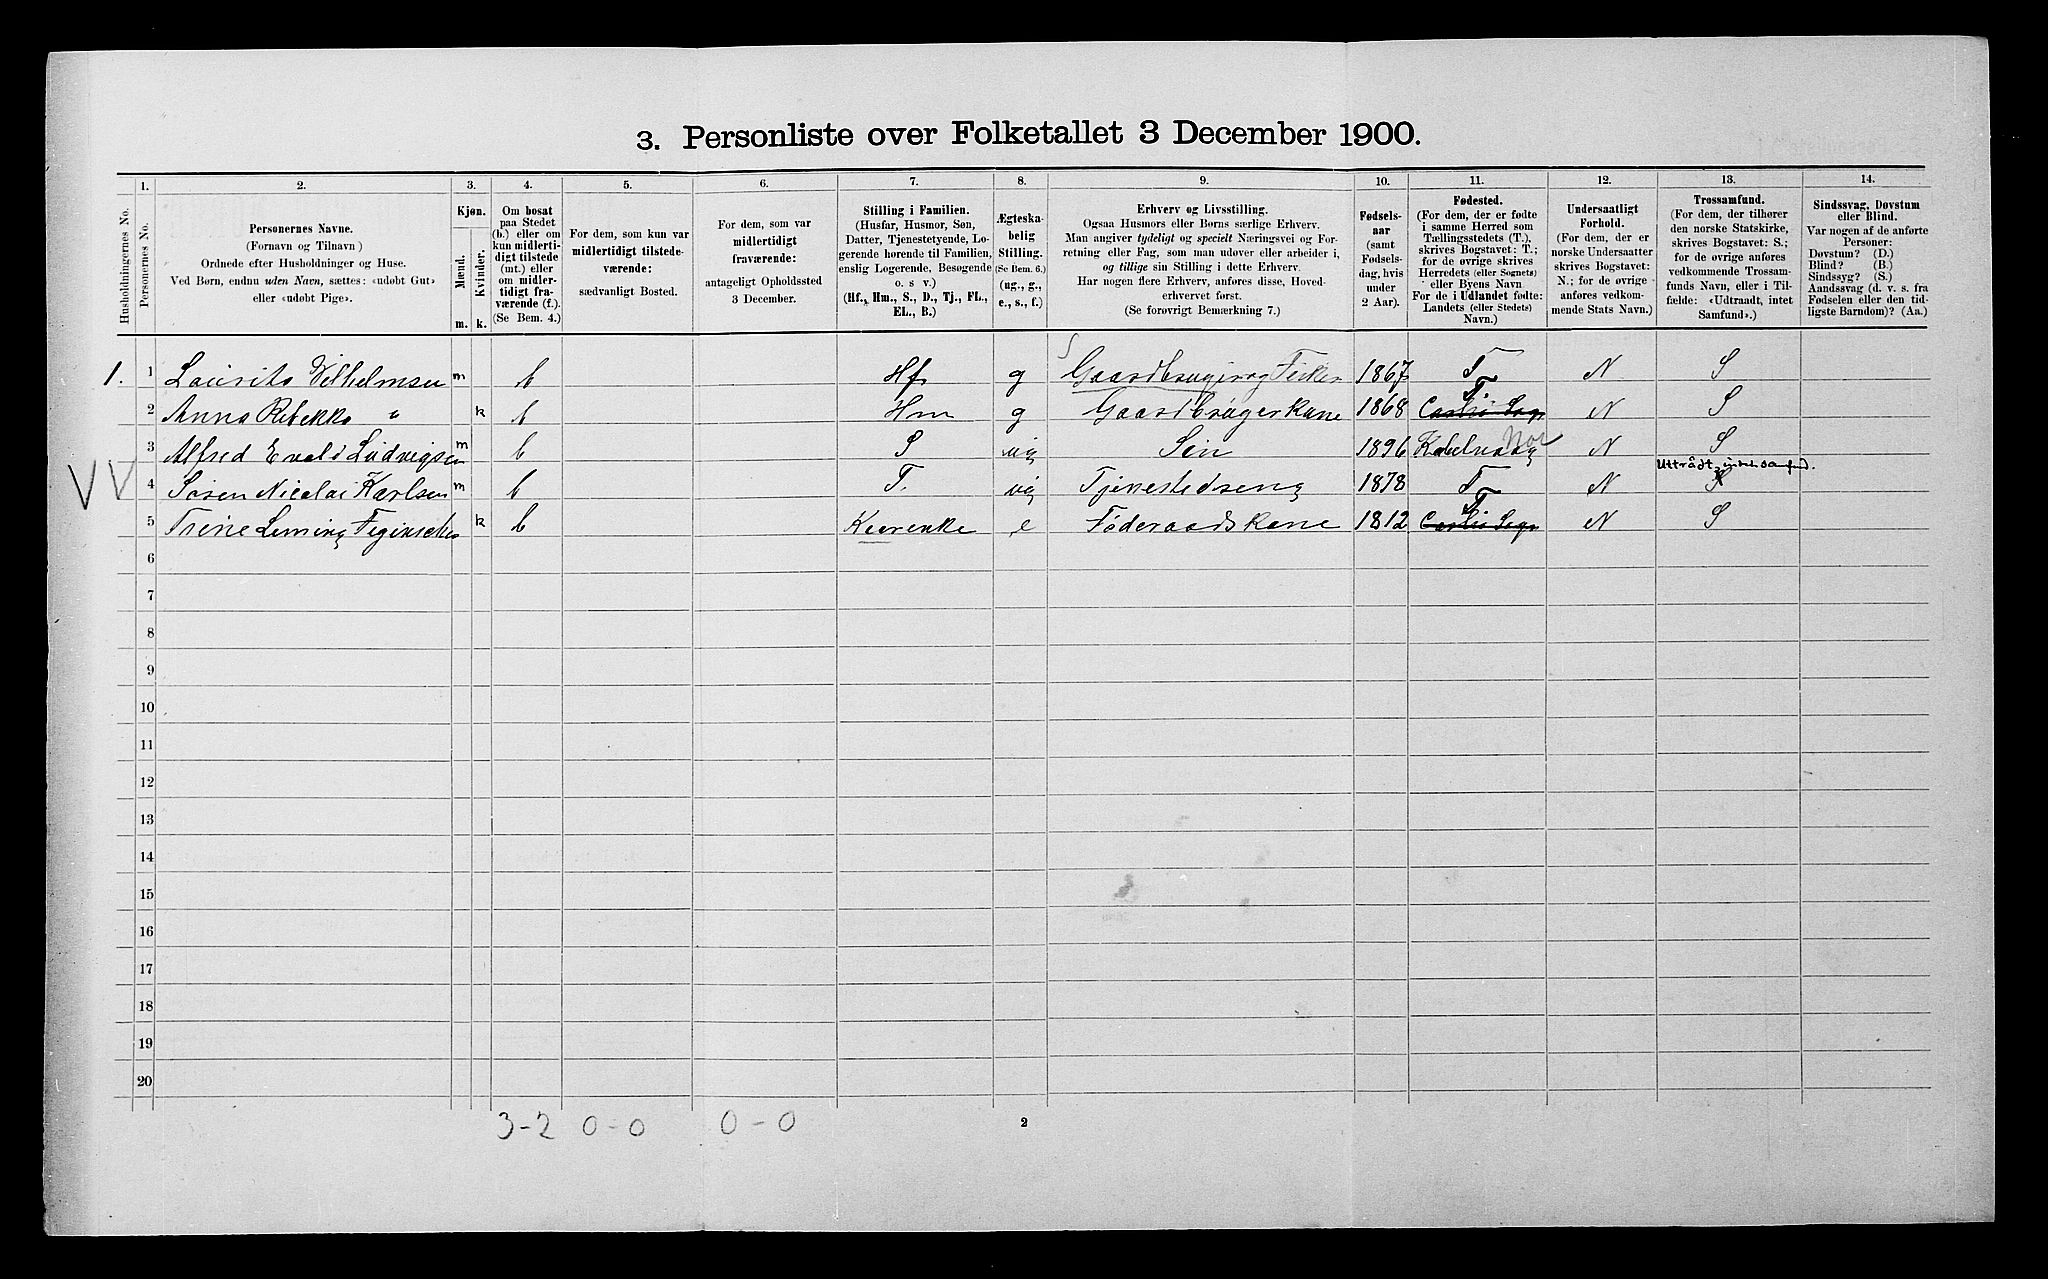 3. Personliste over Folketallet 3 December 1900.
Husholdningernes No.
1.
Personernes No.
2.
Personernes Navne.
(Fornavn og Tilnavn)
Ordnede efter Husholdninger og Huse.
Ved Børn, endnu uden Navn, sættes: «udøbt Gut»
eller «udøbt Pige».
3.
Kjøn.
Mænd.
Kvinder.
m. k.
4.
Om bosat
paa Stedet
(b.) eller om
kun midlerti-
digt tilstede
(mt.) eller
om midler-
tidigt fra-
værende (f.).
(Se Bem. 4.)
5.
For dem, som kun var
midlertidigt tilstede-
værende:
sædvanligt Bosted.
6.
For dem, som var
midlertidigt
fraværende:
antageligt Opholdssted
3 December.
7.
Stilling i Familien.
(Husfar, Husmor, Søn,
Datter, Tjenestetyende, Lo-
gerende hørende til Familien,
enslig Logerende, Besøgende
o. s v.)
(Hf., Hm., S., D., Tj., FL.,
EL., B.)
8.
Ægteska-
belig
Stilling.
(Se Bem. 6.)
(ug., g.,
e., s., f.)
9.
Erhverv og Livsstilling.
Ogsaa Husmors eller Børns særlige Erhverv.
Man angiver tydeligt og specielt Næringsvei og For-
retning eller Fag, som man udøver eller arbeider i,
og tillige sin Stilling i dette Erhverv.
Har nogen flere Erhverv, anføres disse, Hoved-
erhvervet først.
(Se forøvrigt Bemærkning 7.)
10.
Fødsels-
aar
(samt
Fødsels-
dag, hvis
under
2 Aar).
11.
Fødested.
(For dem, der er fødte
i samme Herred som
Tællingsstedets (T.),
skrives Bogstavet: T.;
for de øvrige skrives
Herredets (eller Sognets)
eller Byens Navn.
For de i Udlandet fødte:
Landets (eller Stedets)
Navn.)
12.
Undersaatligt
Forhold.
(For dem, der er
norske Undersaatter
skrives Bogstavet:
N.; for de øvrige
anføres vedkom-
mende Stats Navn.)
13.
Trossamfund.
(For dem, der tilhører
den norske Statskirke,
skrives Bogstavet: S.;
for de øvrige anføres
vedkommende Trossam-
funds Navn, eller i Til-
fælde: «Udtraadt, intet
Samfund».)
14.
Sindssvag, Døvstum
eller Blind.
Var nogen af de anførte
Personer:
Døvstum? (D.)
Blind? (B.)
Sindssyg? (S.)
Aandssvag (d. v. s. fra
Fødselen eller den tid-
ligste Barndom)? (Aa.)
1. 1 Laurits Vilhelmsen m b Hf g Gaardbruger og Fisker 1867 T N S
2 Anna Rebekka " k b Hm g Gaardbrugerkone 1868 T N S
3 Alfred Evald Ludvigsen m b S ug Søn 1896 Kabelvaag N S
VV 4 Søren Nicolai Karlsen m b T. ug Tjenestedreng 1878 T N S Uttrådt, intet samfund.
5 Trine Leming k b e Føderaadskone 1812 T N S
6
7
8
9
10
11
12
13
14
15
16
17
18
19
20
3-2 0-0 0-0 2